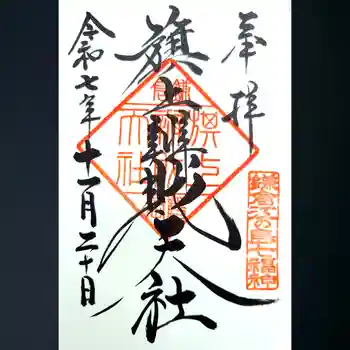 奉拝
旗上辨財天社
鎌倉
旗上
弁財
天社
鎌倉江の島七福神
令和七年十一月二十日